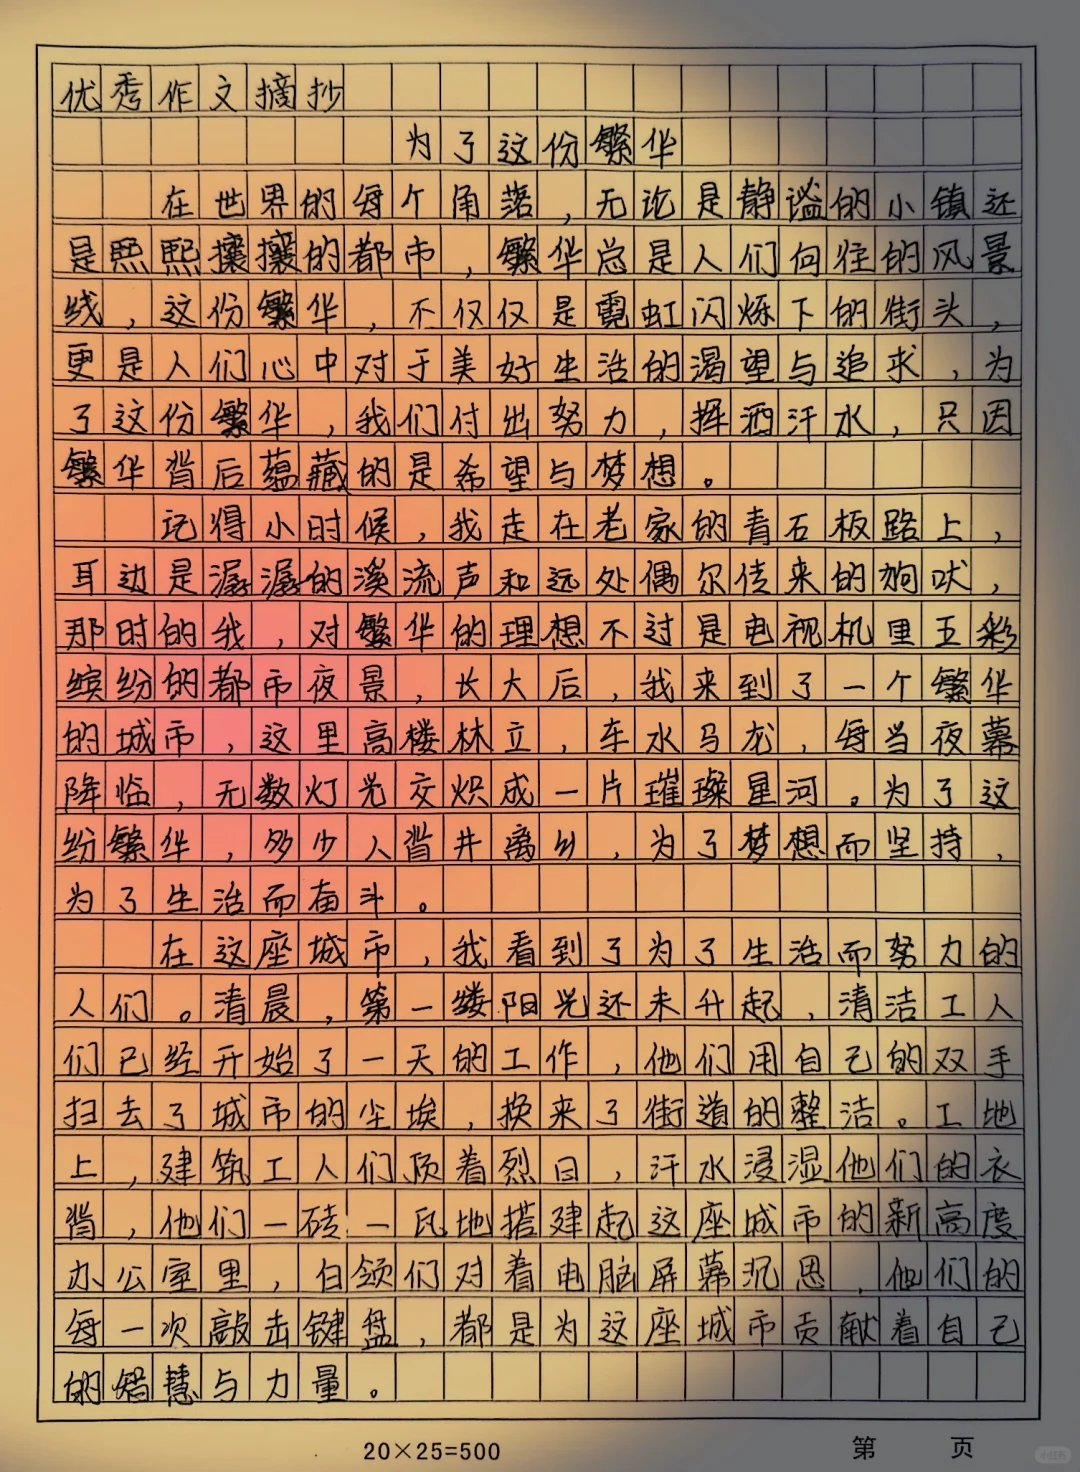 优秀作文摘抄
为了这份繁华
在世界的每个角落，无论是静谧的小镇还
是熙熙攘攘的都市，繁华总是人们向往的风景
线，这份繁华，不仅仅是霓虹闪烁下的街头，
更是人们心中对于美好生活的渴望与追求，为
了这份繁华，我们付出努力，挥洒汗水，只因
繁华背后蕴藏的是希望与梦想。
记得小时候，我走在老家的青石板路上，
耳边是潺潺的溪流声和远处偶尔传来的狗吠，
那时的我，对繁华的理想不过是电视机里五彩
缤纷的都市夜景，长大后，我来到了一个繁华
的城市，这里高楼林立，车水马龙，每当夜幕
降临，无数灯光交炽成一片璀璨星河。为了这
纷繁华，多少人背井离乡，为了梦想而坚持，
为了生活而奋斗。
在这座城市，我看到了为了生活而努力的
人们。清晨，第一缕阳光还未升起，清洁工人
们已经开始了一天的工作，他们用自己的双手
扫去了城市的尘埃，换来了街道的整洁。工地
上，建筑工人们顶着烈日，汗水浸湿他们的衣
背，他们一砖一瓦地搭建起这座城市的新高度
办公室里，白领们对着电脑屏幕沉思，他们的
每一次敲击键盘，都是为这座城市贡献着自己
的智慧与力量。
20×25=500
第 页
小红书